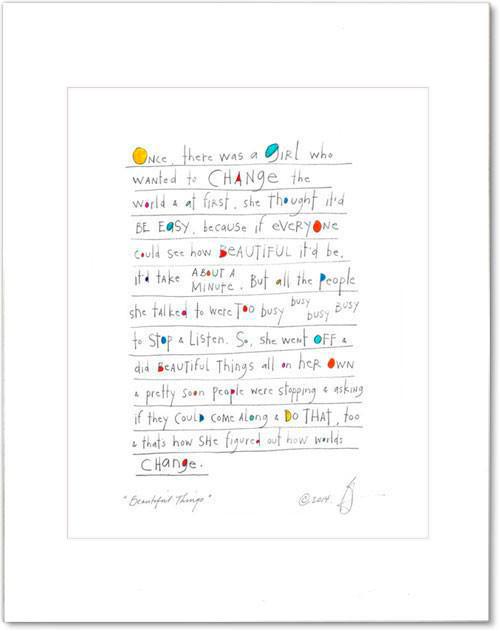 Once, there was a GiRL who
wanted to CHANGE the
world & at first, she thought it'd
BE EASY, because if everyone
could see how BEAUTIFUL it'd be,
it'd take ABOUT A MINUTE. But all the people
she talked to were TOO busy busy busy busy
to Stop & Listen. So, she went OFF &
did BEAUTIFUL Things all on her OWN
& pretty soon people were stopping & asking
if they COULD COME ALONG & DO THAT, too
& thats how SHE figured out how worlds
CHANGE.
"Beautiful Things" ©2014